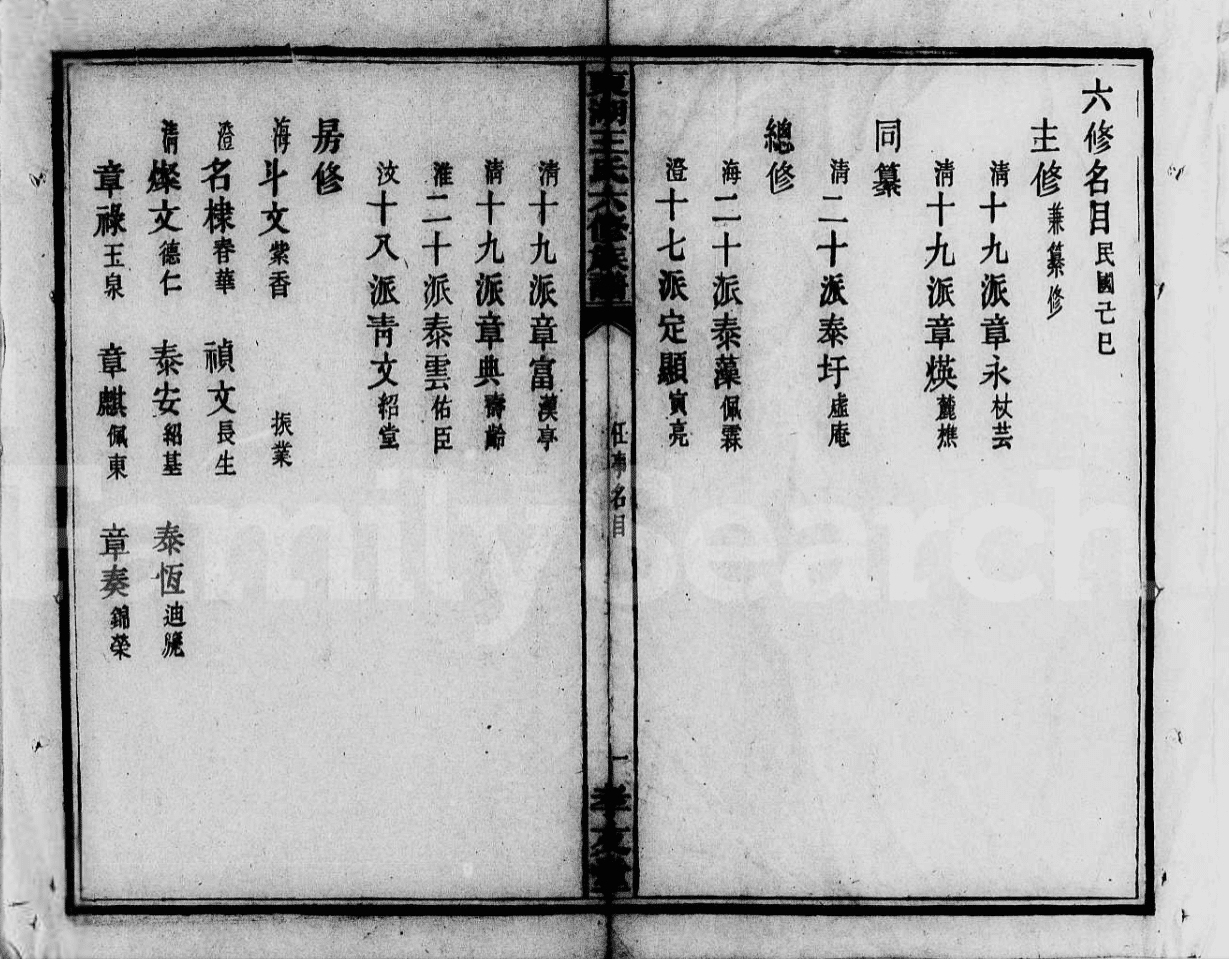 六修名目民國己巳
主修兼纂修
清十九派章永杖芸
清十九派章煐麓樵
同纂
清二十派泰圩虛庵
總修
海二十派泰藻佩霖
澄十七派定顯寅亮
東湖王氏六修族譜
任事名目
一
孝友堂
清十九派章富漢亭
清十九派章典壽齡
淮二十派泰雲佑臣
汶十八派青文紹堂
房修
海斗文紫香 振業
澄名棣春華 禎文長生
清燦文德仁 泰安紹基 泰恆迪
章祿玉泉 章麒佩東 章奏錦榮
FamilySearch